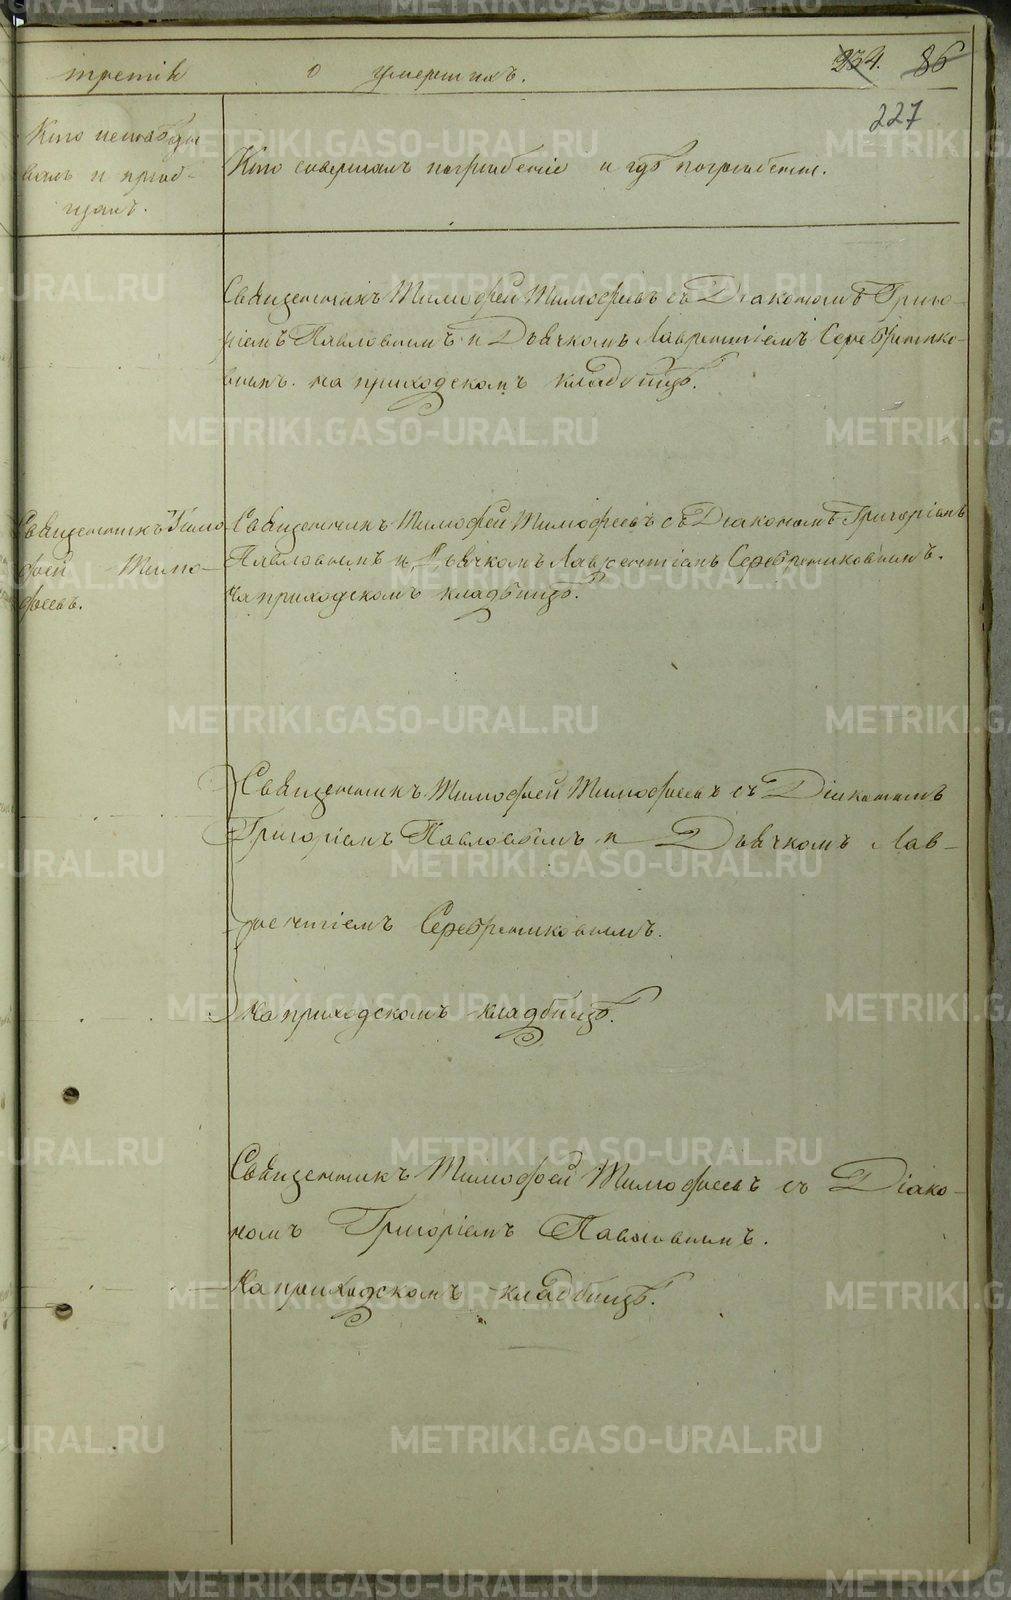 третія о умершихъ.
234. 86
227
Кто исповѣды
валъ и пріоб-
щалъ.
Кто совершалъ погребеніе и гдѣ погребены.
Священникъ Тимофей Тимофеевъ съ Діакономъ Григо-
ріемъ Павловымъ и Дьячкомъ Лаврентіемъ Серебренико-
вымъ. на приходскомъ кладбищѣ.
Священникъ Тимо-
фей Тимо-
феевъ.
Священникъ Тимофей Тимофеевъ съ Діакономъ Григоріемъ
Павловымъ и Дьячкомъ Лаврентіемъ Серебрениковымъ.
На приходскомъ кладбищѣ.
Священникъ Тимофей Тимофеевъ съ Діакономъ
Григоріемъ Павловымъ и Дьячкомъ Лав-
рентіемъ Серебрениковымъ.
На приходскомъ кладбищѣ.
Священникъ Тимофей Тимофеевъ съ Діако-
номъ Григоріемъ Павловымъ.
На приходскомъ кладбищѣ.
METRIKI.GASO-URAL.RU